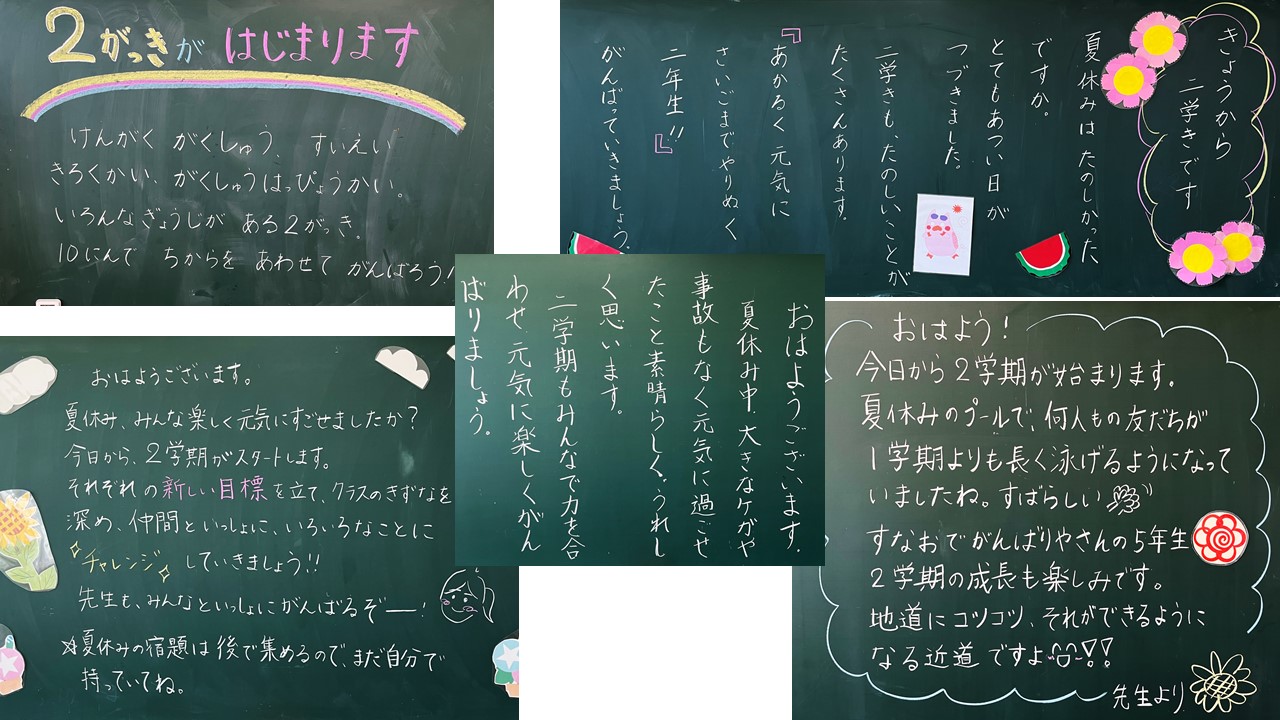 2がっきが はじまります
けんがく がくしゅう、すいえい
きろくかい、がくしゅうはっぴょうかい。
いろんなぎょうじが ある2がっき。
10にんで ちからを あわせて がんばろう!
きょうから
二学きです
夏休みは たのしかった
ですか。
とてもあつい日が
つづきました。
二学きも、たのしいことが
たくさんあります。
『あかるく 元気に
さいごまでやりぬく
二年生!!』
がんばっていきましょう。
おはようございます。
夏休み中、大きなケガや
事故もなく元気に過ごせ
たこと素晴らしく、うれし
く思います。
二学期もみんなで力を合
わせ、元気に楽しくがん
ばりましょう。
おはようございます。
夏休み、みんな楽しく元気にすごせましたか?
今日から、2学期がスタートします。
それぞれの新しい目標を立て、クラスのきずなを
深め、仲間といっしょに、いろいろなことに
チャレンジ していきましょう!!
先生も、みんなといっしょにがんばるぞー!
☆夏休みの宿題は後で集めるので、まだ自分で
持っていてね。
おはよう!
今日から2学期が始まります。
夏休みのプールで、何人もの友だちが
1学期よりも長く泳げるようになって
いましたね。すばらしい
すなおでがんばりやさんの5年生
2学期の成長も楽しみです。
地道にコツコツ、それができるように
なる近道ですよ!!
先生より